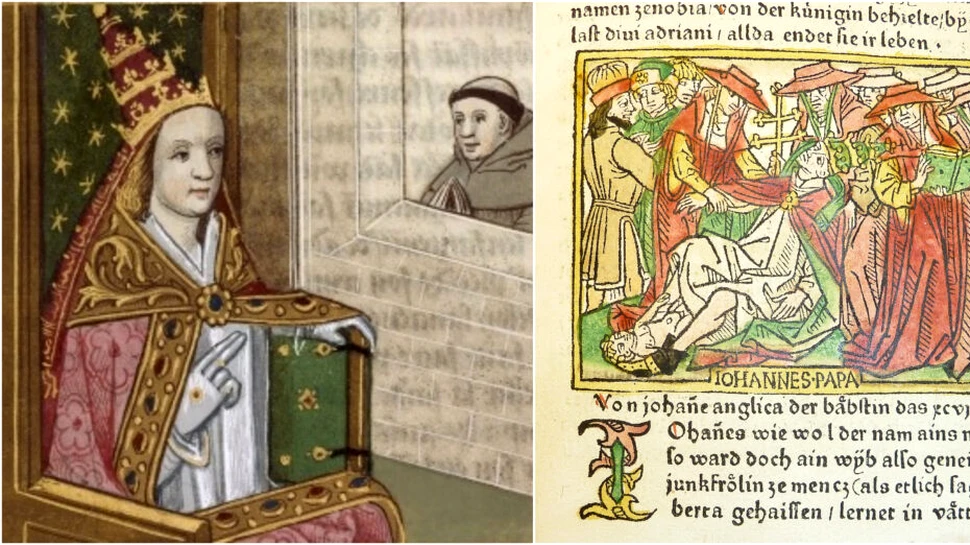 namen zenobia/von der künigin behielte/bÿ
last diui adriani/allda endet sie ir leben.
IOHANNES·PAPA
Von johañe anglica der bäbstin das xcvj
Ohañes wie wol der nam ains m
so ward doch ain wÿb also genei
junkfrölin ze mencz (als etlich sa
berta gehaissen/lernet in vätt